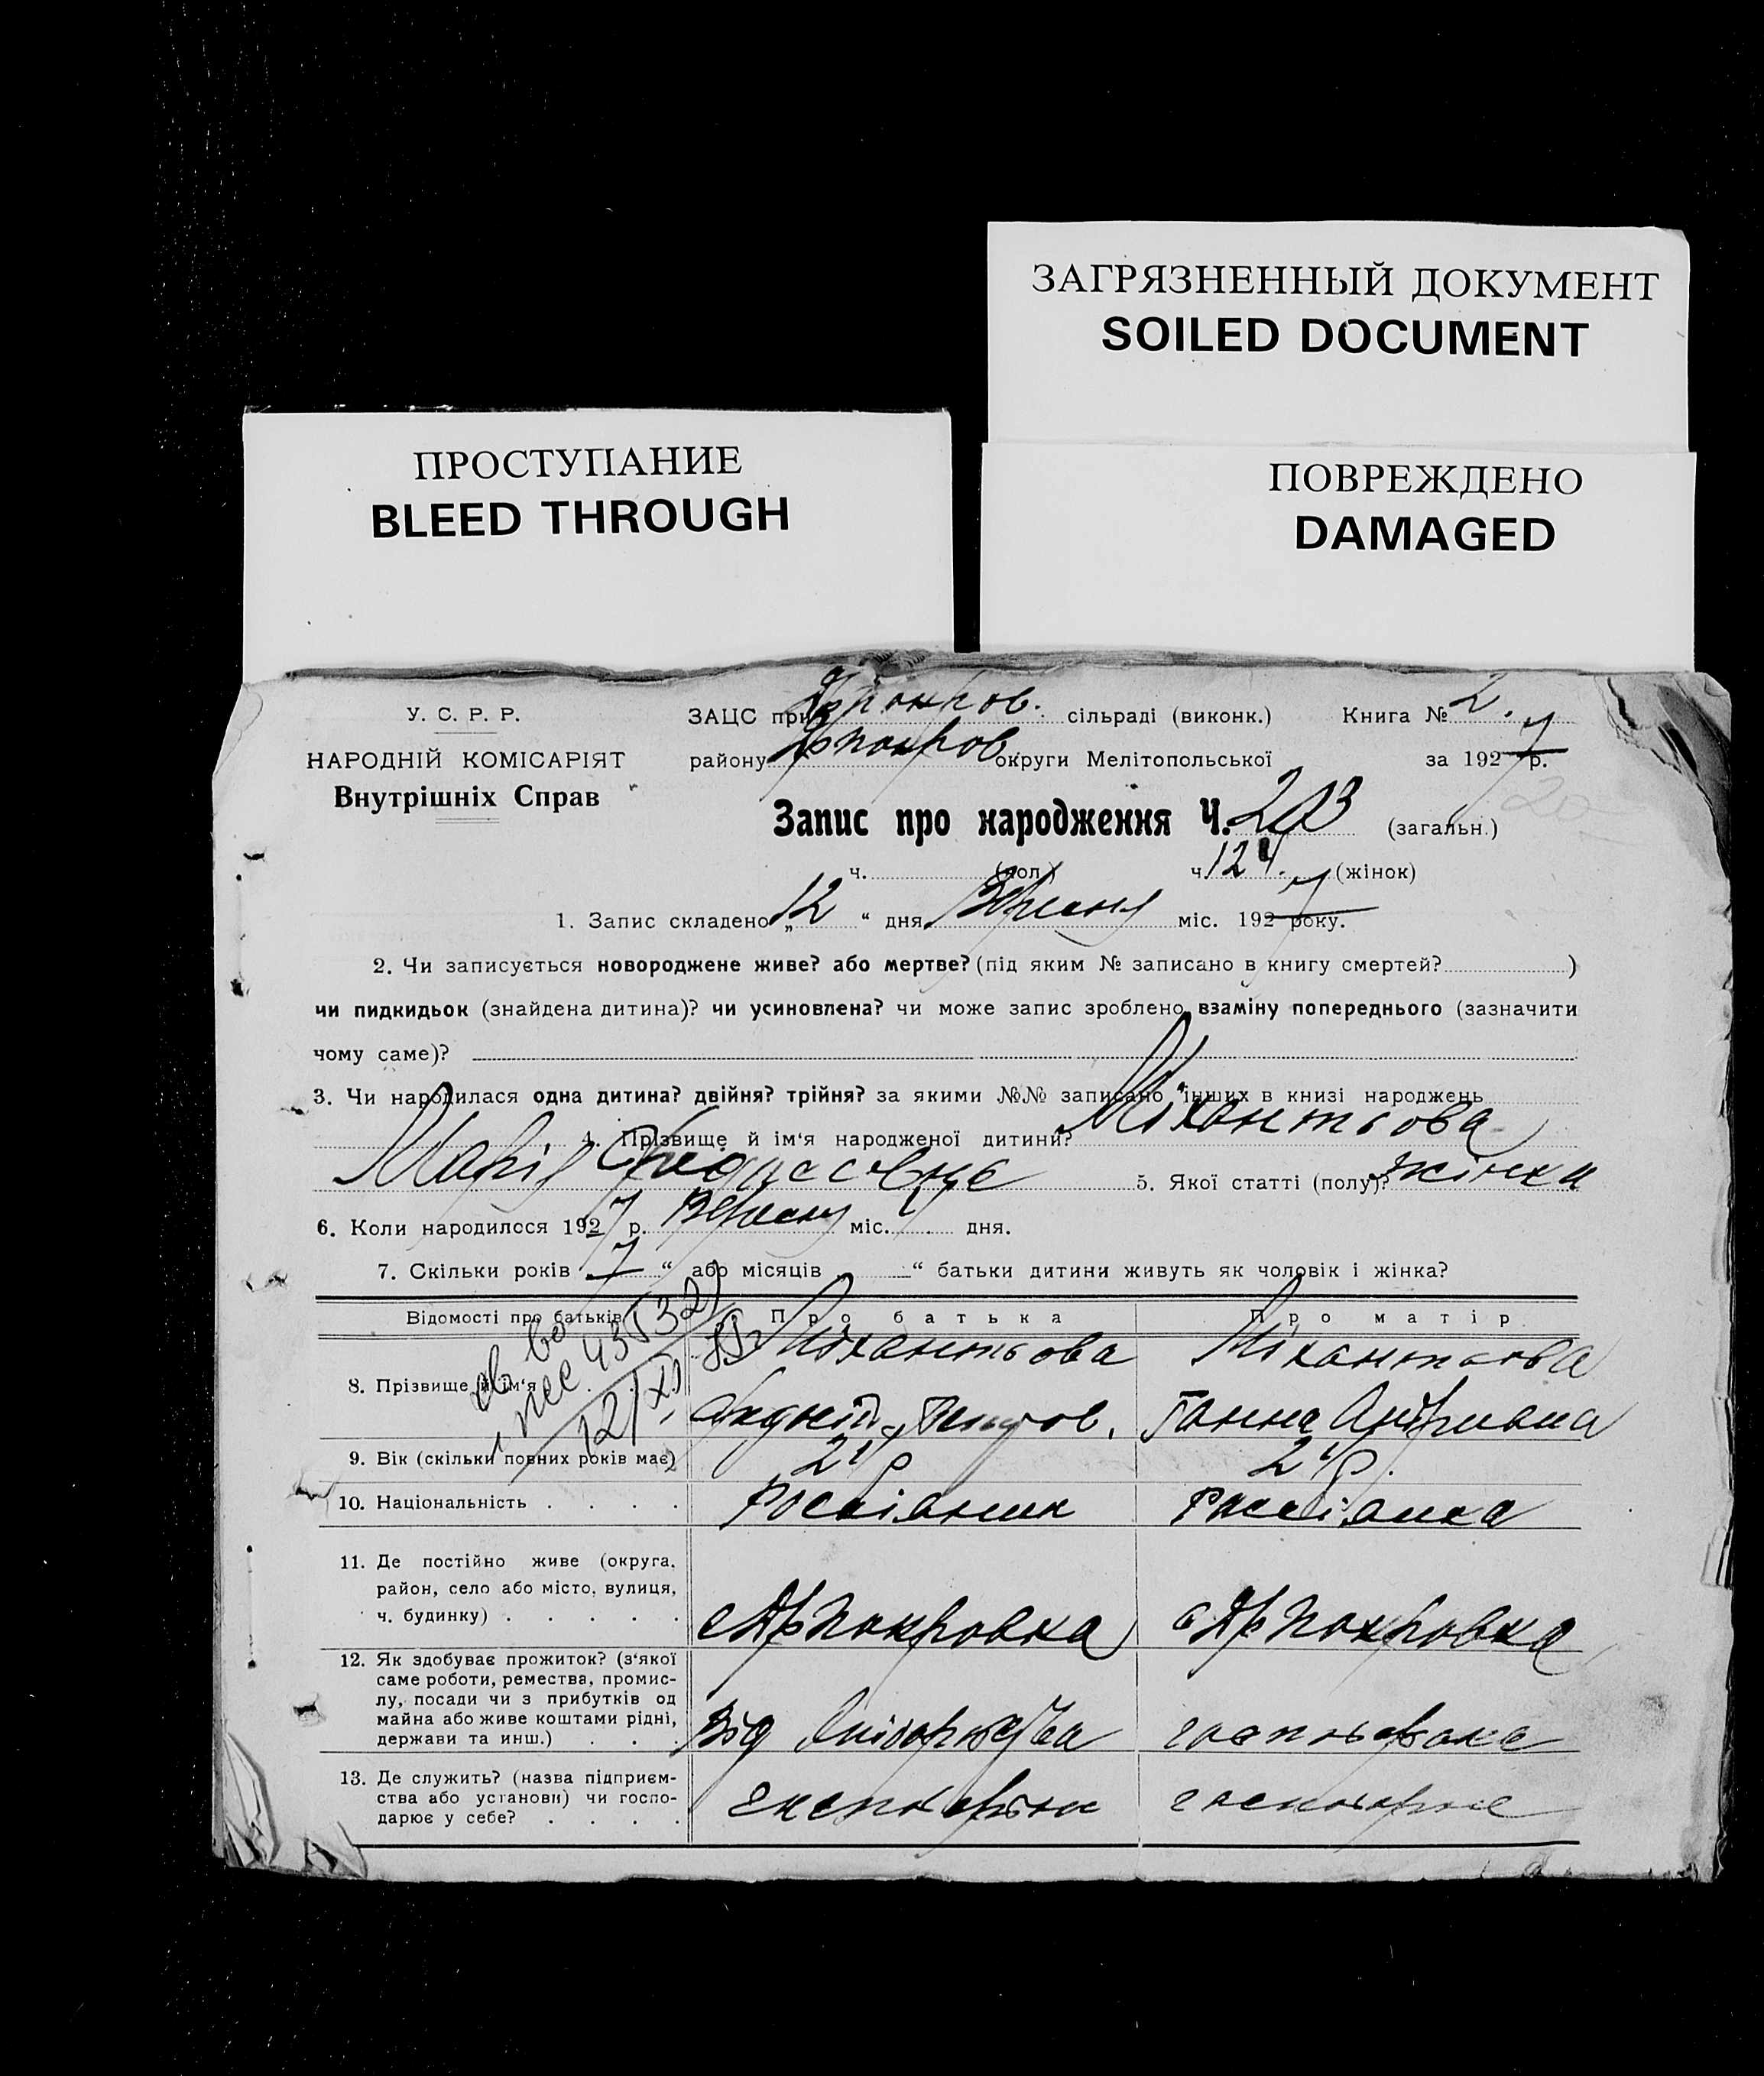 ЗАГРЯЗНЕННЫЙ ДОКУМЕНТ
SOILED DOCUMENT
ПРОСТУПАНИЕ
BLEED THROUGH
ПОВРЕЖДЕНО
DAMAGED
У. С. Р. Р.
НАРОДНІЙ КОМІСАРІЯТ
Внутрішніх Справ
ЗАЦС при сільраді (виконк.) Книга № 2.
району округи Мелітопольської за 1927 р.
Запис про народження Ч. 203 (загальн.)
ч. (чол.) ч. 124. (жінок)
1. Запис складено „12“ дня Вересня міс. 1927 року.
2. Чи записується новороджене живе? або мертве? (під яким № записано в книгу смертей? )
чи пидкидьок (знайдена дитина)? чи усиновлена? чи може запис зроблено взаміну попереднього (зазначити
чому саме)?
3. Чи народилася одна дитина? двійня? трійня? за якими №№ записано інших в книзі народжень
4. Прізвище й ім‘я народженої дитини? Міхантьова
Марія 5. Якої статті (полу)? жінка
6. Коли народилося 1927 р. Вересня міс. 7 дня.
7. Скільки років 7 “ або місяців “ батьки дитини живуть як чоловік і жінка?
Відомості про батьків Про батька Про матір
8. Прізвище й ім‘я Міхантьова Міхантьова
Ганна
9. Вік (скільки повних років має) 21 р 21 р.
10. Національність . . . . Росіянин Россіанка
11. Де постійно живе (округа,
район, село або місто, вулиця,
ч. будинку) . . . . . с Дрпокровка с Дрпокровка
12. Як здобуває прожиток? (з‘якої
саме роботи, ремества, промис-
лу, посади чи з прибутків од
майна або живе коштами рідні,
держави та инш.) . . . Від
13. Де служить? (назва підприєм-
ства або установи) чи госпо-
дарює у себе? . . . .